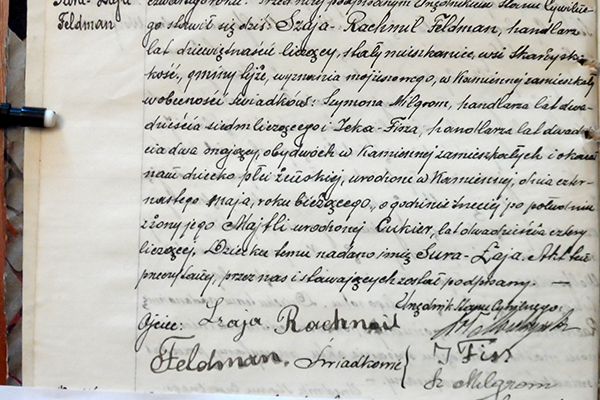 Sura-Łaja
Feldman
go stawił się dziś Szaja-Rachmil Feldman, handlarz
lat dziewiętnaście liczący, stały mieszkaniec wsi Skarżysko
kość., gminy Łyże, wyznania mojżeszowego, w Kamiennej zamieszkały
w obecności świadków: Szymona Milgrom, handlarza lat dwa-
dzieścia siedm liczącego i Icka Fisza, handlarza lat dwadzie
cia dwa mający, obydwóch w Kamiennej zamieszkałych i okazał
nam dziecko płci żeńskiej, urodzone w Kamiennej, dnia czter-
nastego maja, roku bieżącego, o godzinie trzeciej po południu
z żony jego Majtli urodzonej Cukier, lat dwadzieścia cztery
liczącej. Dziecku temu nadano imię Sura-Łaja. Akt ten
przeczytawszy, przez nas i stawających został podpisany. —
Urzędnik Stanu Cywilnego:
Ojciec: Szaja Rachmil
Feldman. Świadkowie { I Fisz
Sz Milgrom